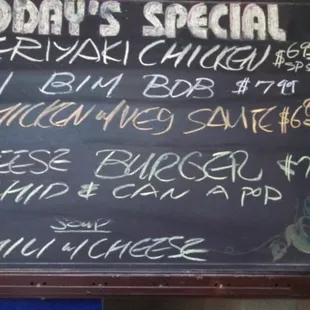 ODAY'S SPECIAL
ERIYAKI CHICKEN $6
BIM BOB $7.99
HICKEN W/VEG SAUTE $6
EESE BURGER $7
CHIP & CAN A POP
SOUP
HILI W/CHEESE